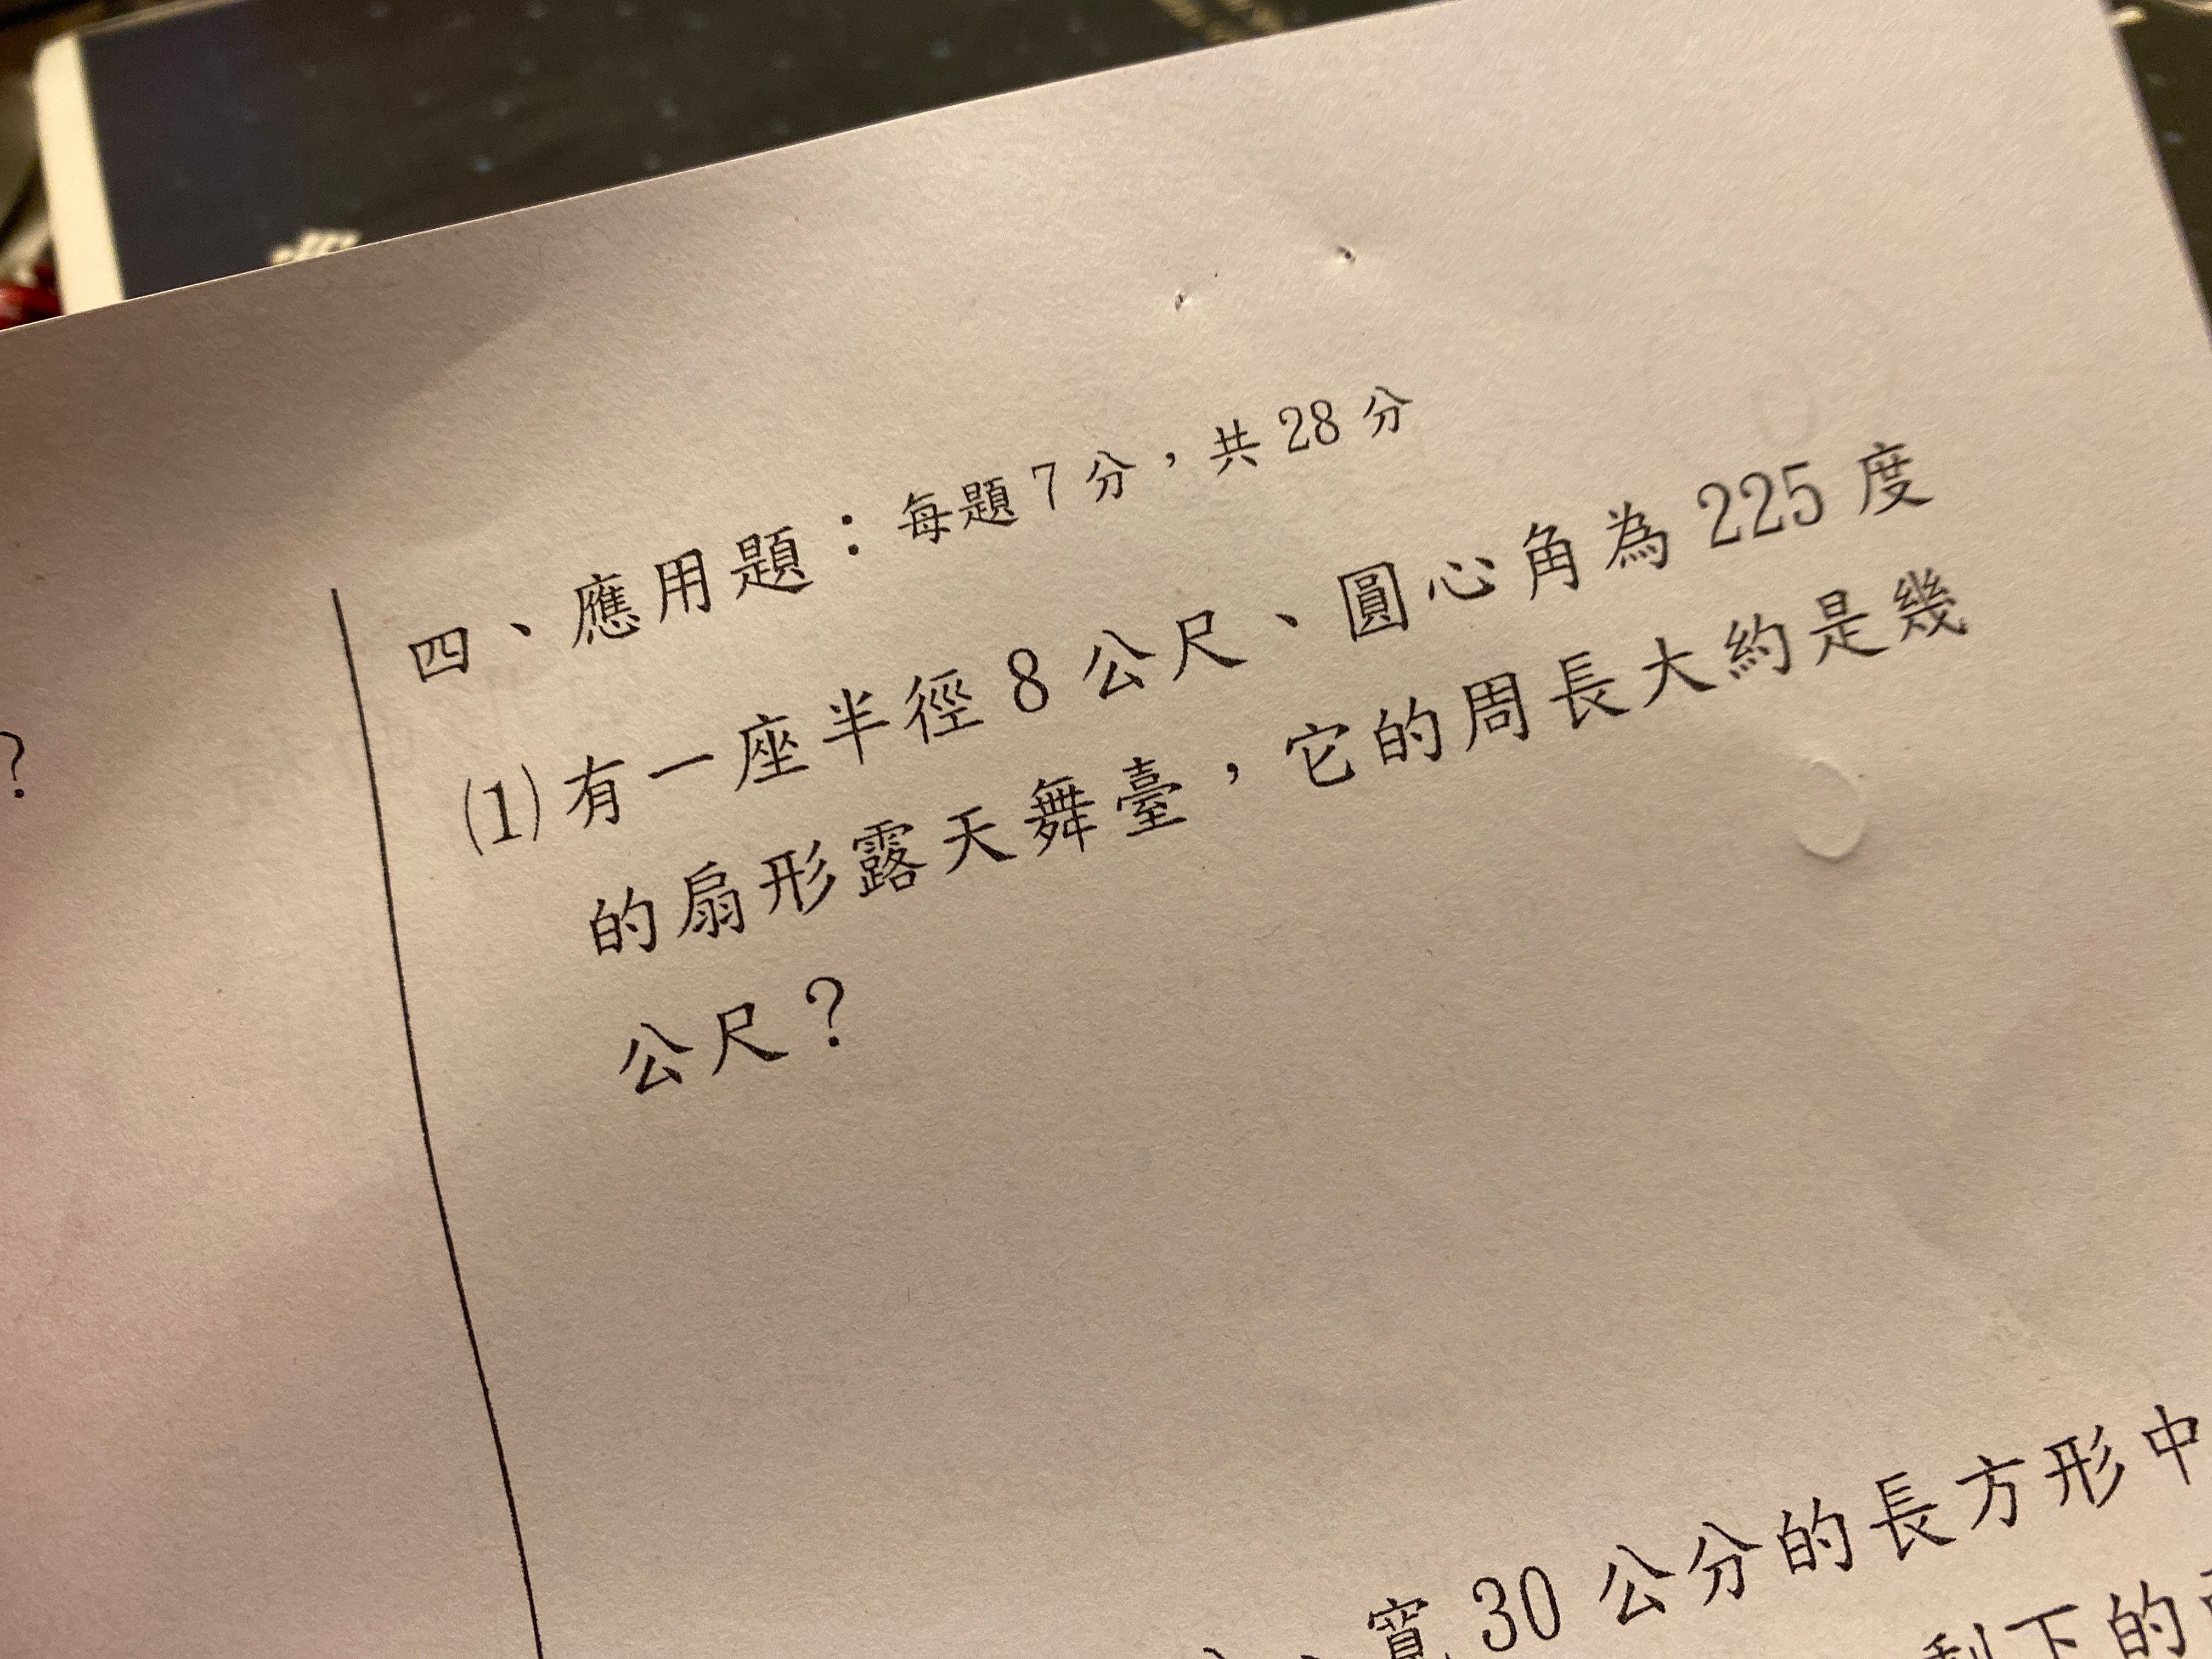 ?
四、應用題：每題7分，共28分
(1)有一座半徑8公尺、圓心角為225度
的扇形露天舞臺，它的周長大約是幾
公尺？
寬30公分的長方形中
剩下的